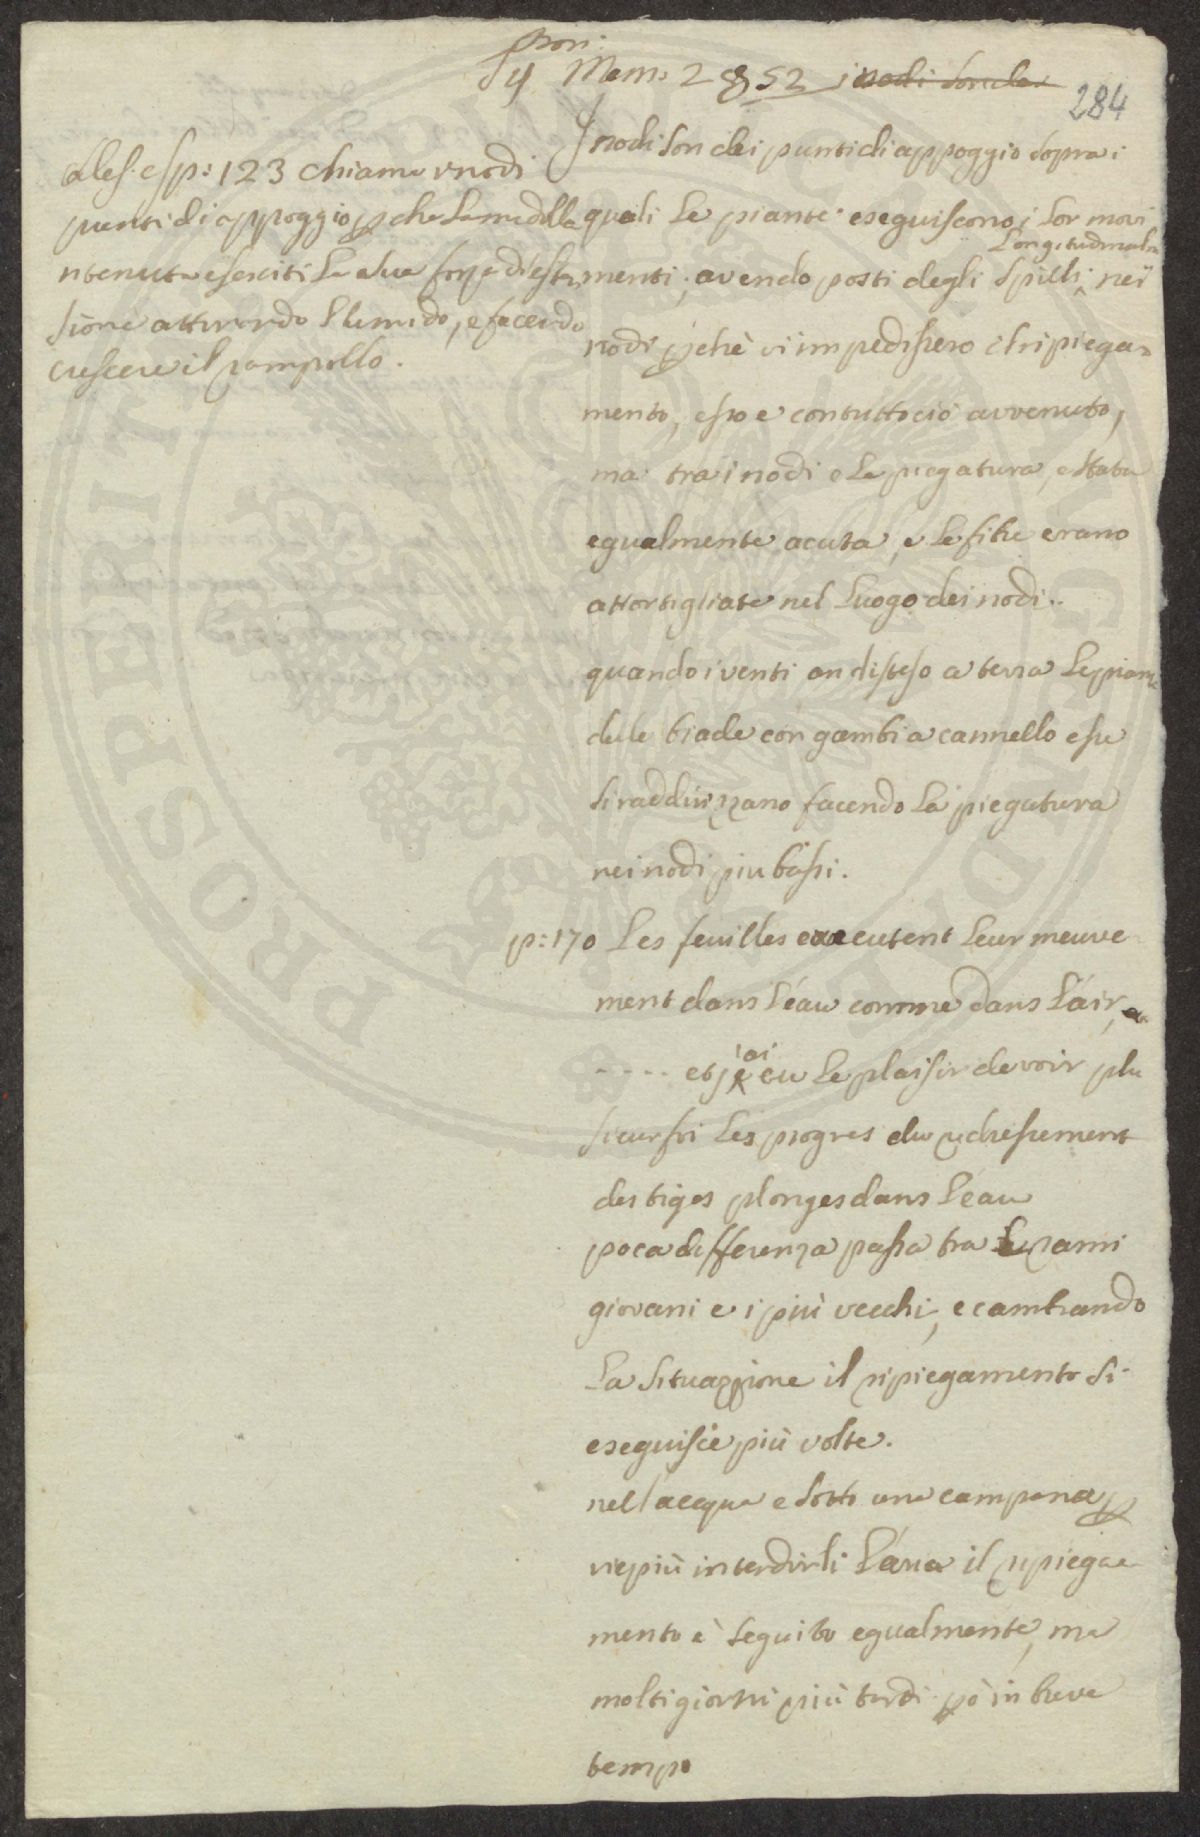 Bon:
Mem: 2 § 52 i nodi son de
284
I nodi son dei punti di appoggio sopra i
quali le piante eseguiscono i lor movi
menti; avendo posti degli spilli longitudinalm nei
nodi pchè vi impedissero il ripiega=
mento, esso e contuttociò avvenuto,
ma tra i nodi e la piegatura, e stata
egualmente acuta, e le fibre erano
attortigliate nel luogo dei nodi.
quando i venti an disteso a terra le piante
delle biade con gambi a cannello esse
si raddirizzano facendo la piegatura
nei nodi piu bassi.
p: 170 Les feuilles executent leur meuve
ment dans l'éau comme dans l'áir,
.... et j'ai eu le plaisir de voir plu
sieurfoi les progres du redressement
des tiges plonges dans l'eau
poca differenza passa tra le rami
giovani e i più vecchi, e cambiando
la situazione il ripiegamento si
eseguisce più volte.
nell'acqua e sotto una campana p
viepiù interdirli l'aria il ripiega
mento è seguito egualmente, ma
molti giorni più tardi pò in breve
tempo
Hales. esp: 123 chiama i nodi
punti di appoggio pche la midolla
ntenuta eserciti la sua forza d'esten
sione attirando l'umido, e facendo
crescere il rampollo.
PROSPERITATI